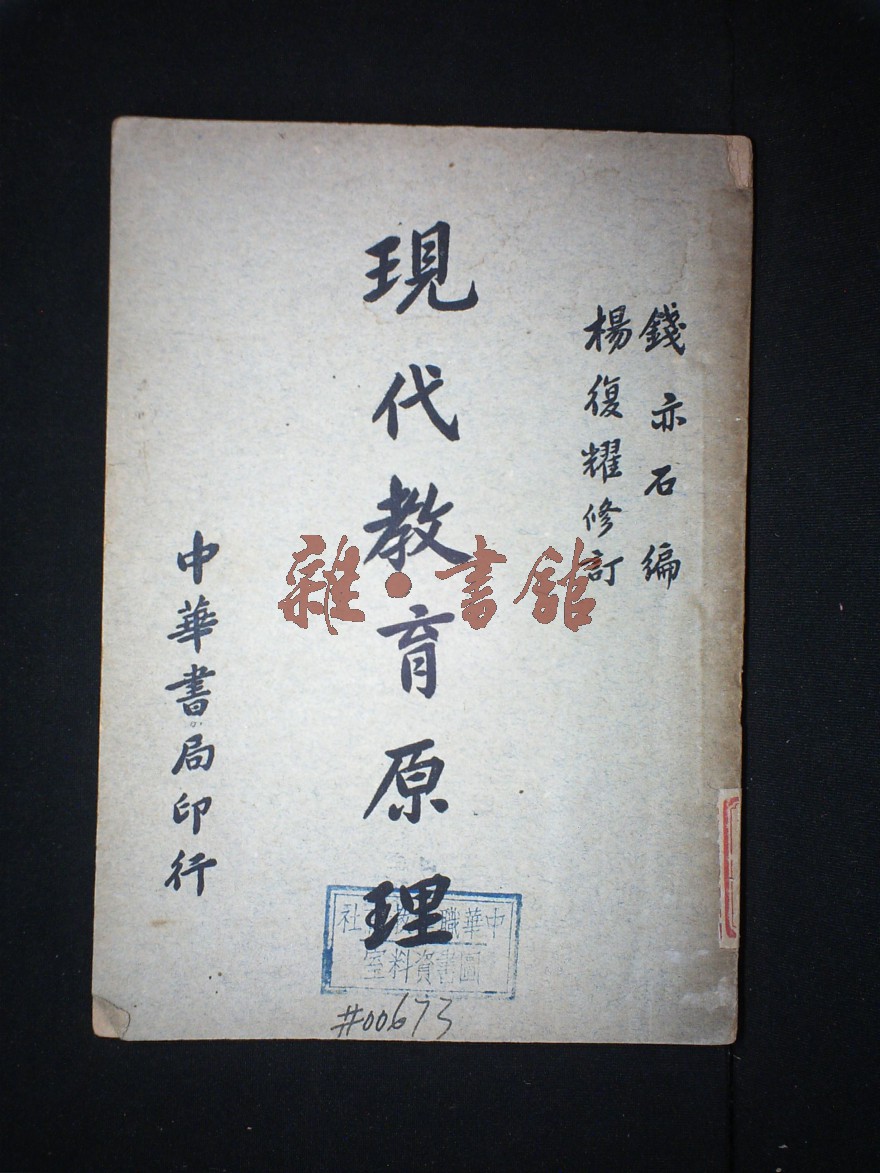 錢亦石編
楊復耀修訂
現代教育原理
中華書局印行
雜·書館
中華職教社
圖書資料室
#00673